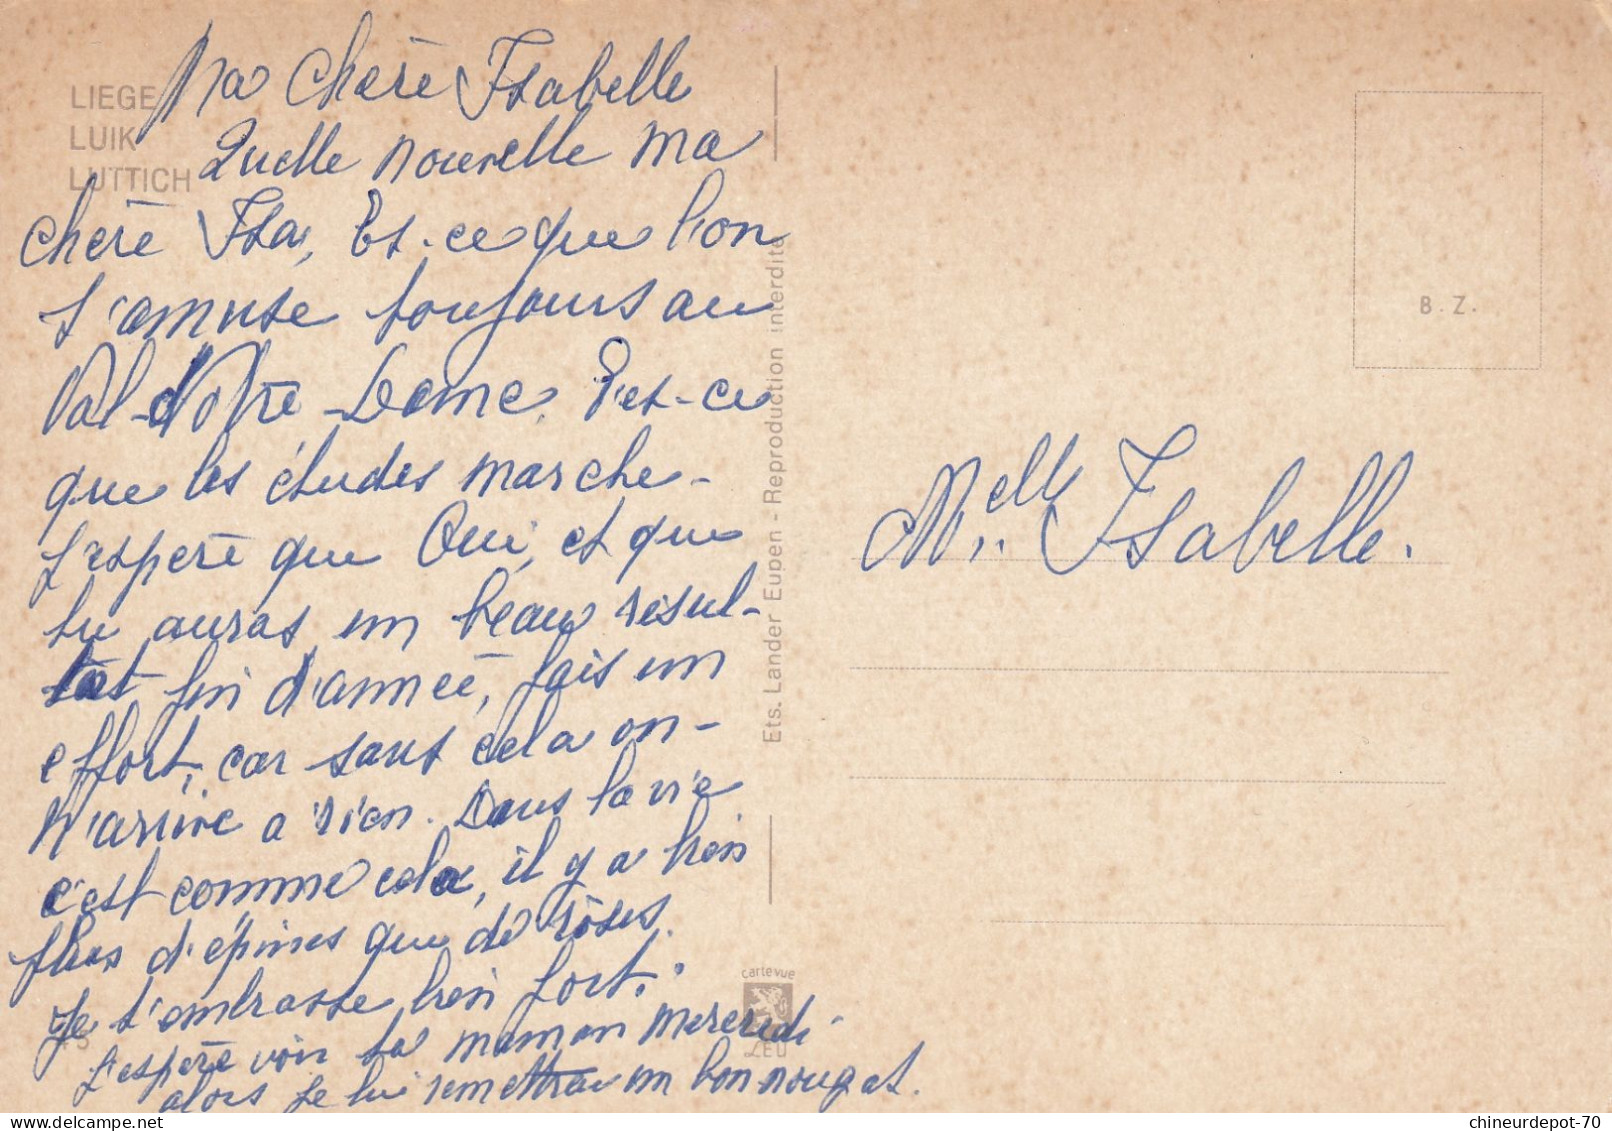 LIEGE
LUIK
LUTTICH
Ma Chère Isabelle
Quelle nouvelle ma
chère Isa, Est-ce que l'on
s'amuse toujours au
Val-Notre-Dame. Est-ce
que les études marche-
J'espère que Oui, et que
tu auras un beau résul-
tat fin d'année, fais un
effort, car sans cela on-
N'arrive a rien. Dans la vie
c'est comme cela, il y a bien
plus d'épines que de roses.
Je t'embrasse bien fort.
J'espère voir ta maman Mercredi
alors je lui remettrai un bon nougat.
Ets. Lander Eupen - Reproduction interdite
cartevue
B.Z.
Melle Isabelle.
chineurdepot-70